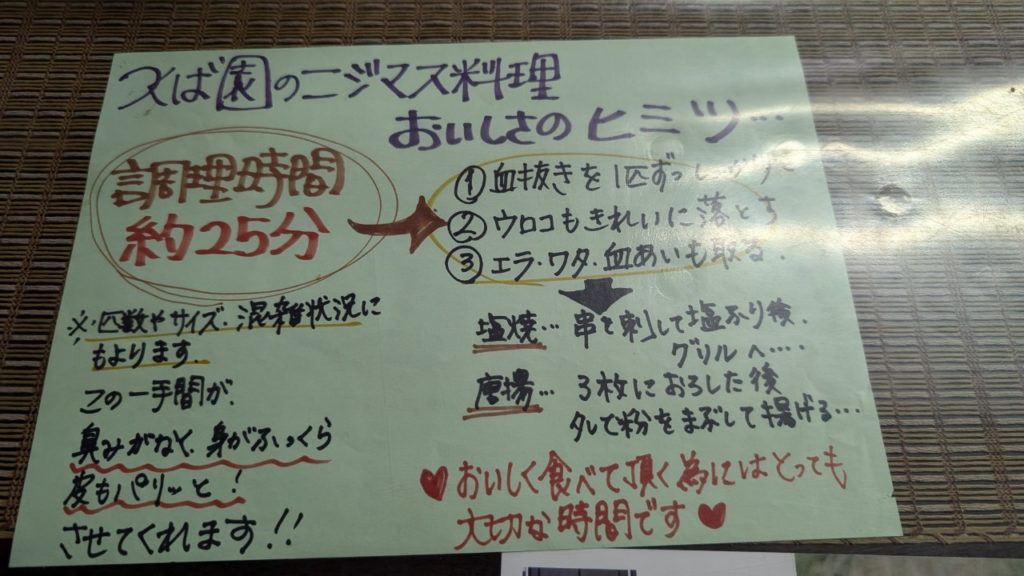 つくば園のニジマス料理
おいしさのヒミツ…
調理時間
約25分
① 血抜きを1匹ずつ
② ウロコもきれいに落とす
③ エラ・ワタ・血あいも取る.
※・匹数やサイズ・混雑状況に
もよります.
この一手間が.
臭みがなく、身がふっくら
皮もパリッと!
させてくれます!!
塩焼… 串を刺して塩ふり後.
グリルへ….
唐揚… 3枚におろした後
タレで粉をまぶして揚げる…
♥おいしく食べて頂く為にはとっても
大切な時間です♥